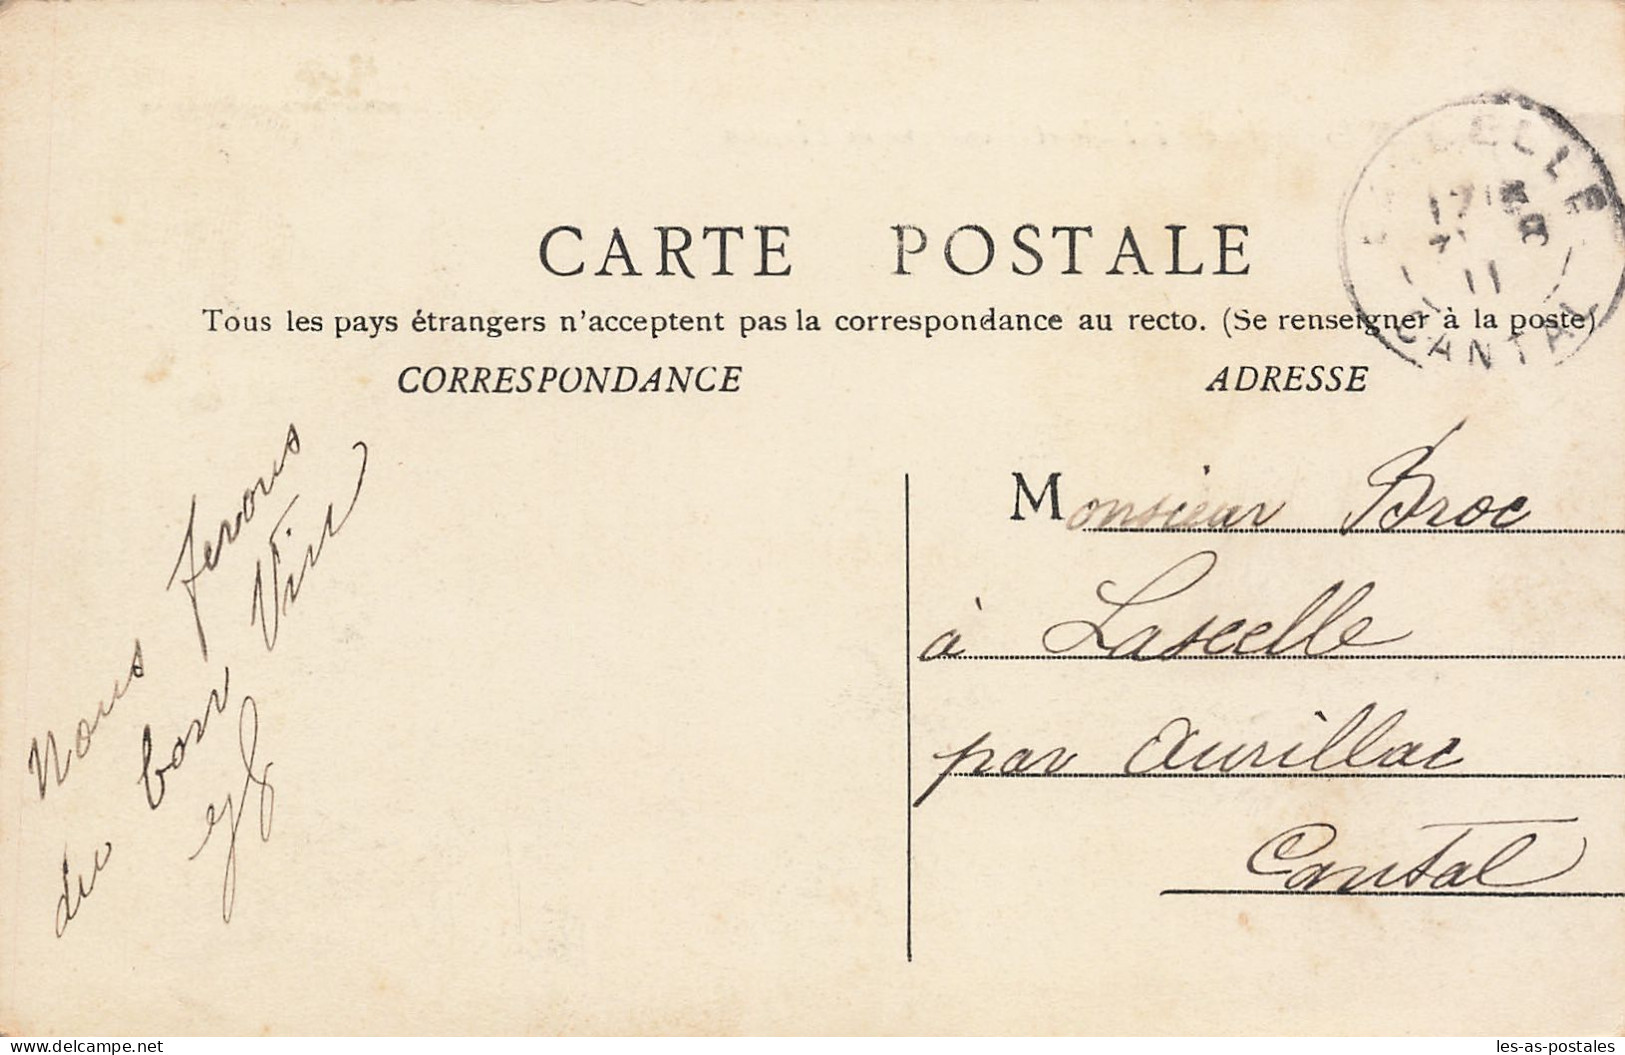 CARTE POSTALE
Tous les pays étrangers n'acceptent pas la correspondance au recto. (Se renseigner à la poste)
CORRESPONDANCE
ADRESSE
Nous ferons
du bon Vin
Monsieur Broc
à Lascelle
par Aurillac
Cantal
LASCELLE
17
11
CANTAL
delcampe.net
les-as-postales